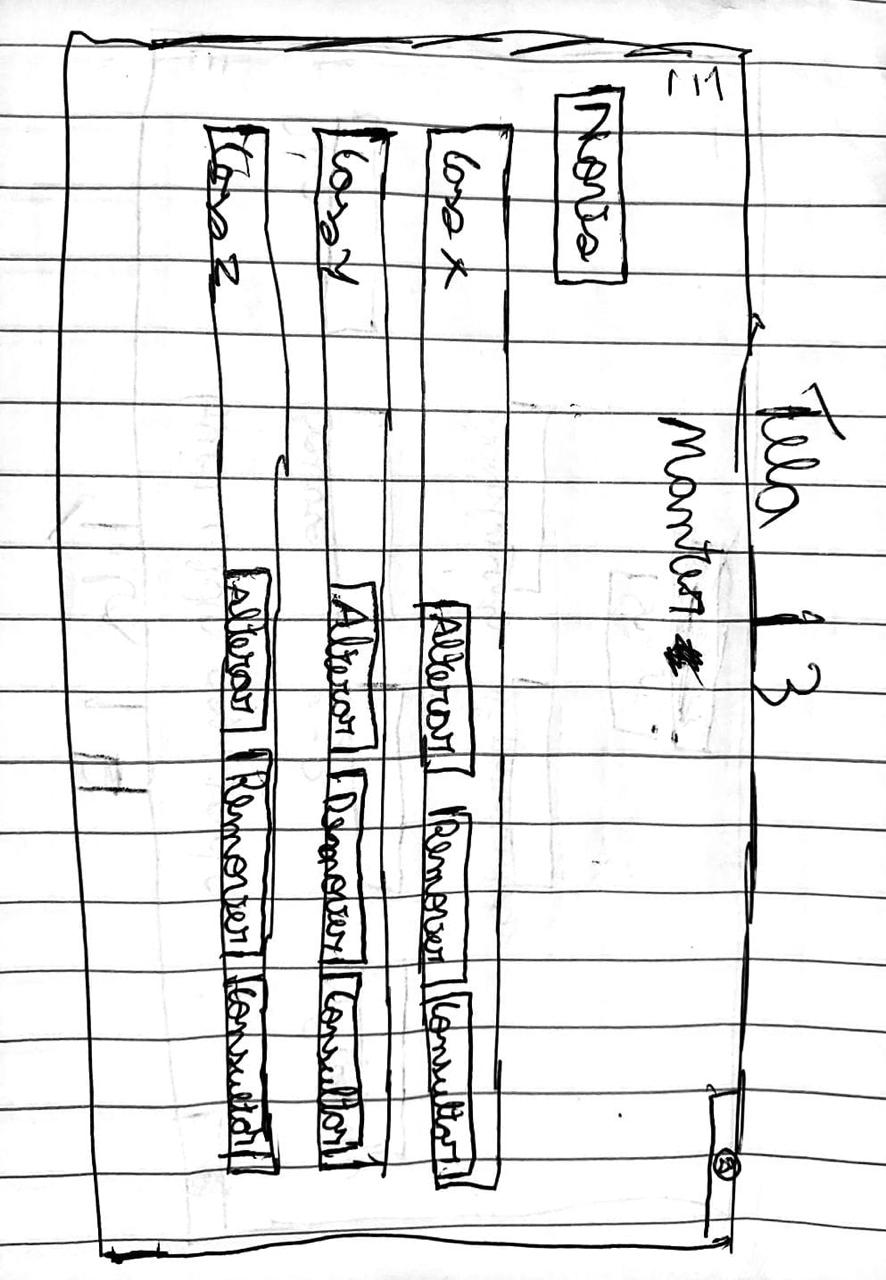 Tela 13
Manter
Novo
Caso X Alterar Remover Consultar
Caso Y Alterar Remover Consultar
Caso Z Alterar Remover Consultar